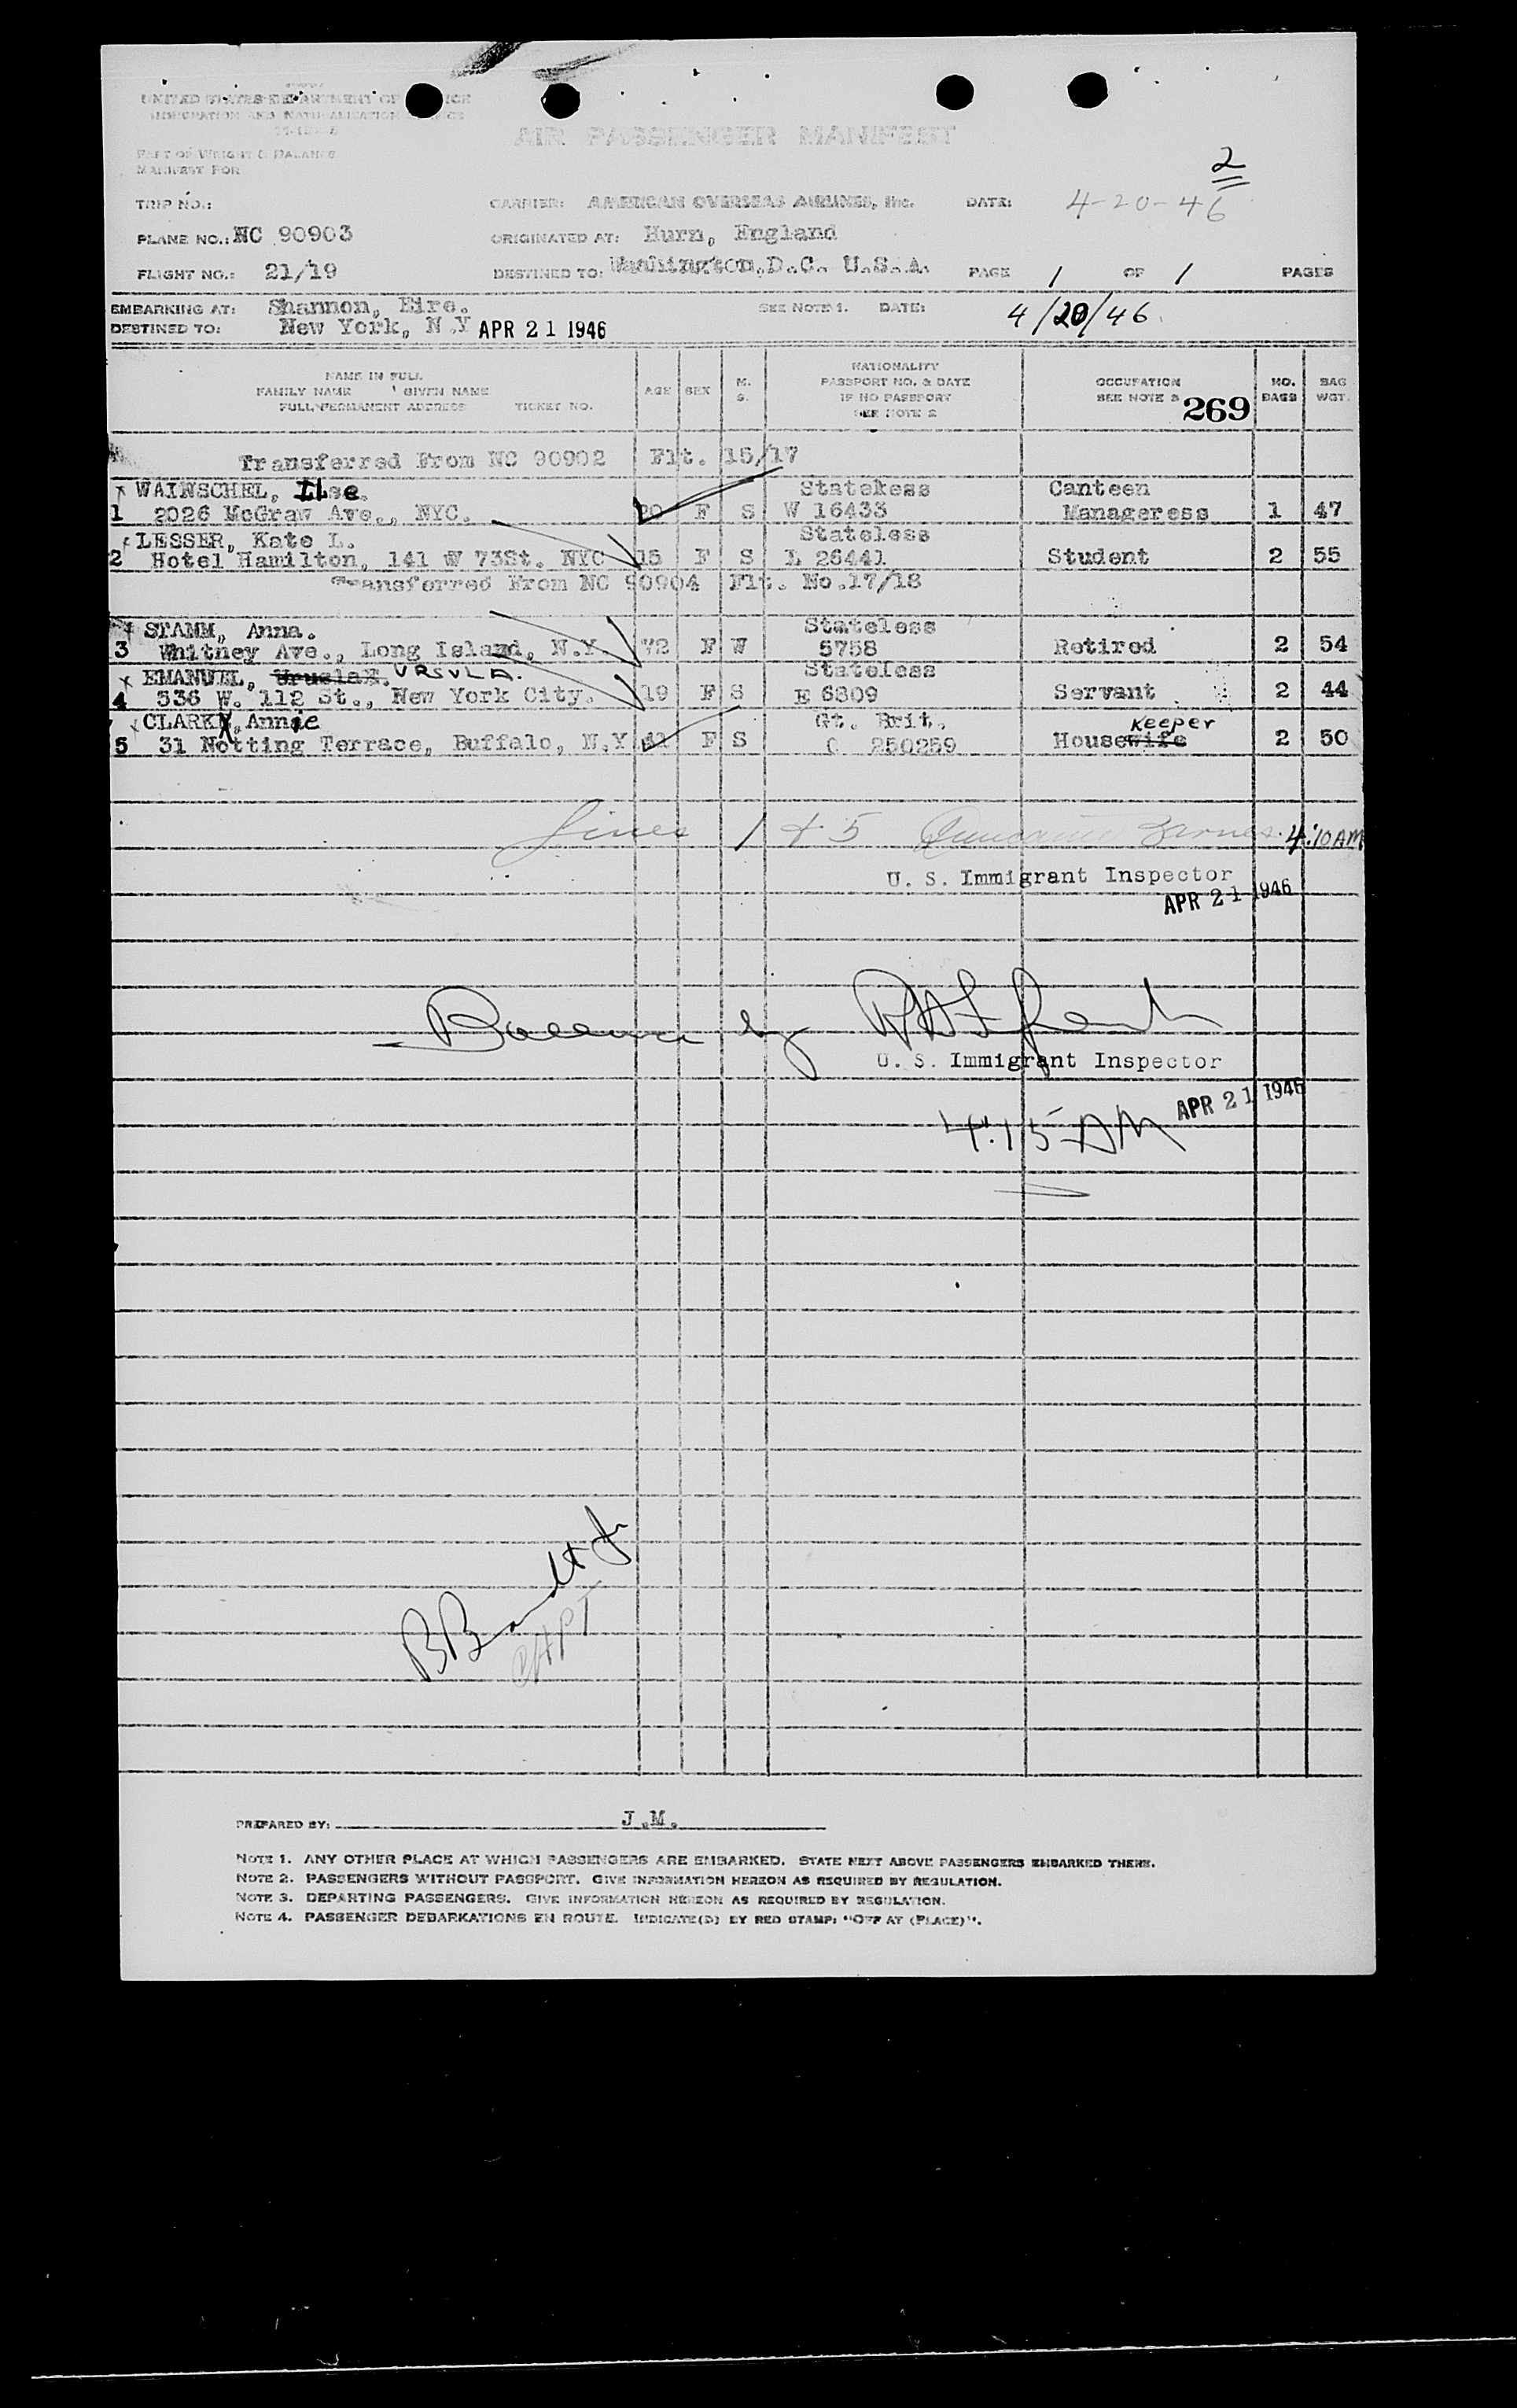 UNITED STATES DEPARTMENT OF
IMMIGRATION AND NATURALIZATION
AIR PASSENGER MANIFEST
PART OF WEIGHT & BALANCE
MANIFEST FOR
2
TRIP NO.: CARRIER: AMERICAN OVERSEAS AIRLINES, Inc. DATE: 4-20-46
PLANE NO.: NC 90903 ORIGINATED AT: Hurn, England
FLIGHT NO.: 21/19 DESTINED TO: Washington,D.C. U.S.A. PAGE 1 OF 1 PAGES
EMBARKING AT: Shannon, Eire. SEE NOTE 1. DATE: 4/20/46.
DESTINED TO: New York, N.Y APR 21 1946
NAME IN FULL
FAMILY NAME GIVEN NAME
FULL PERMANENT ADDRESS TICKET NO.
AGE SEX M. S.
NATIONALITY
PASSPORT NO. & DATE
IF NO PASSPORT
SEE NOTE 2
OCCUPATION
SEE NOTE 3
269
NO. BAGS
BAG WGT.
Transferred From NC 90902 Flt. 15/17
x WAINSCHEL, Ilse. Stateless Canteen
1 2026 McGraw Ave., NYC. 20 F S W 16433 Manageress 1 47
LESSER, Kate L. Stateless
2 Hotel Hamilton, 141 W 73St. NYC 15 F S L 26441 Student 2 55
Transferred From NC 90904 Flt. No.17/18
x STAMM, Anna. Stateless
3 Whitney Ave., Long Island, N.Y. 72 F W 5758 Retired 2 54
x EMANUEL, URSULA. Stateless
4 536 W. 112 St., New York City. 19 F S E 6809 Servant 2 44
x CLARK, Annie Gt. Brit. Keeper
5 31 Notting Terrace, Buffalo, N.Y 41 F S C 250259 Housewife 2 50
Lines 1 + 5 4:10AM
U. S. Immigrant Inspector
APR 21 1946
by
U. S. Immigrant Inspector
APR 21 1946
4:15 AM
B Brandt Jr
CAPT
PREPARED BY: J.M.
NOTE 1. ANY OTHER PLACE AT WHICH PASSENGERS ARE EMBARKED. STATE NEXT ABOVE PASSENGERS EMBARKED THERE.
NOTE 2. PASSENGERS WITHOUT PASSPORT. GIVE INFORMATION HEREON AS REQUIRED BY REGULATION.
NOTE 3. DEPARTING PASSENGERS. GIVE INFORMATION HEREON AS REQUIRED BY REGULATION.
NOTE 4. PASSENGER DEBARKATIONS EN ROUTE. INDICATE(D) BY RED STAMP: "OFF AT (PLACE)".